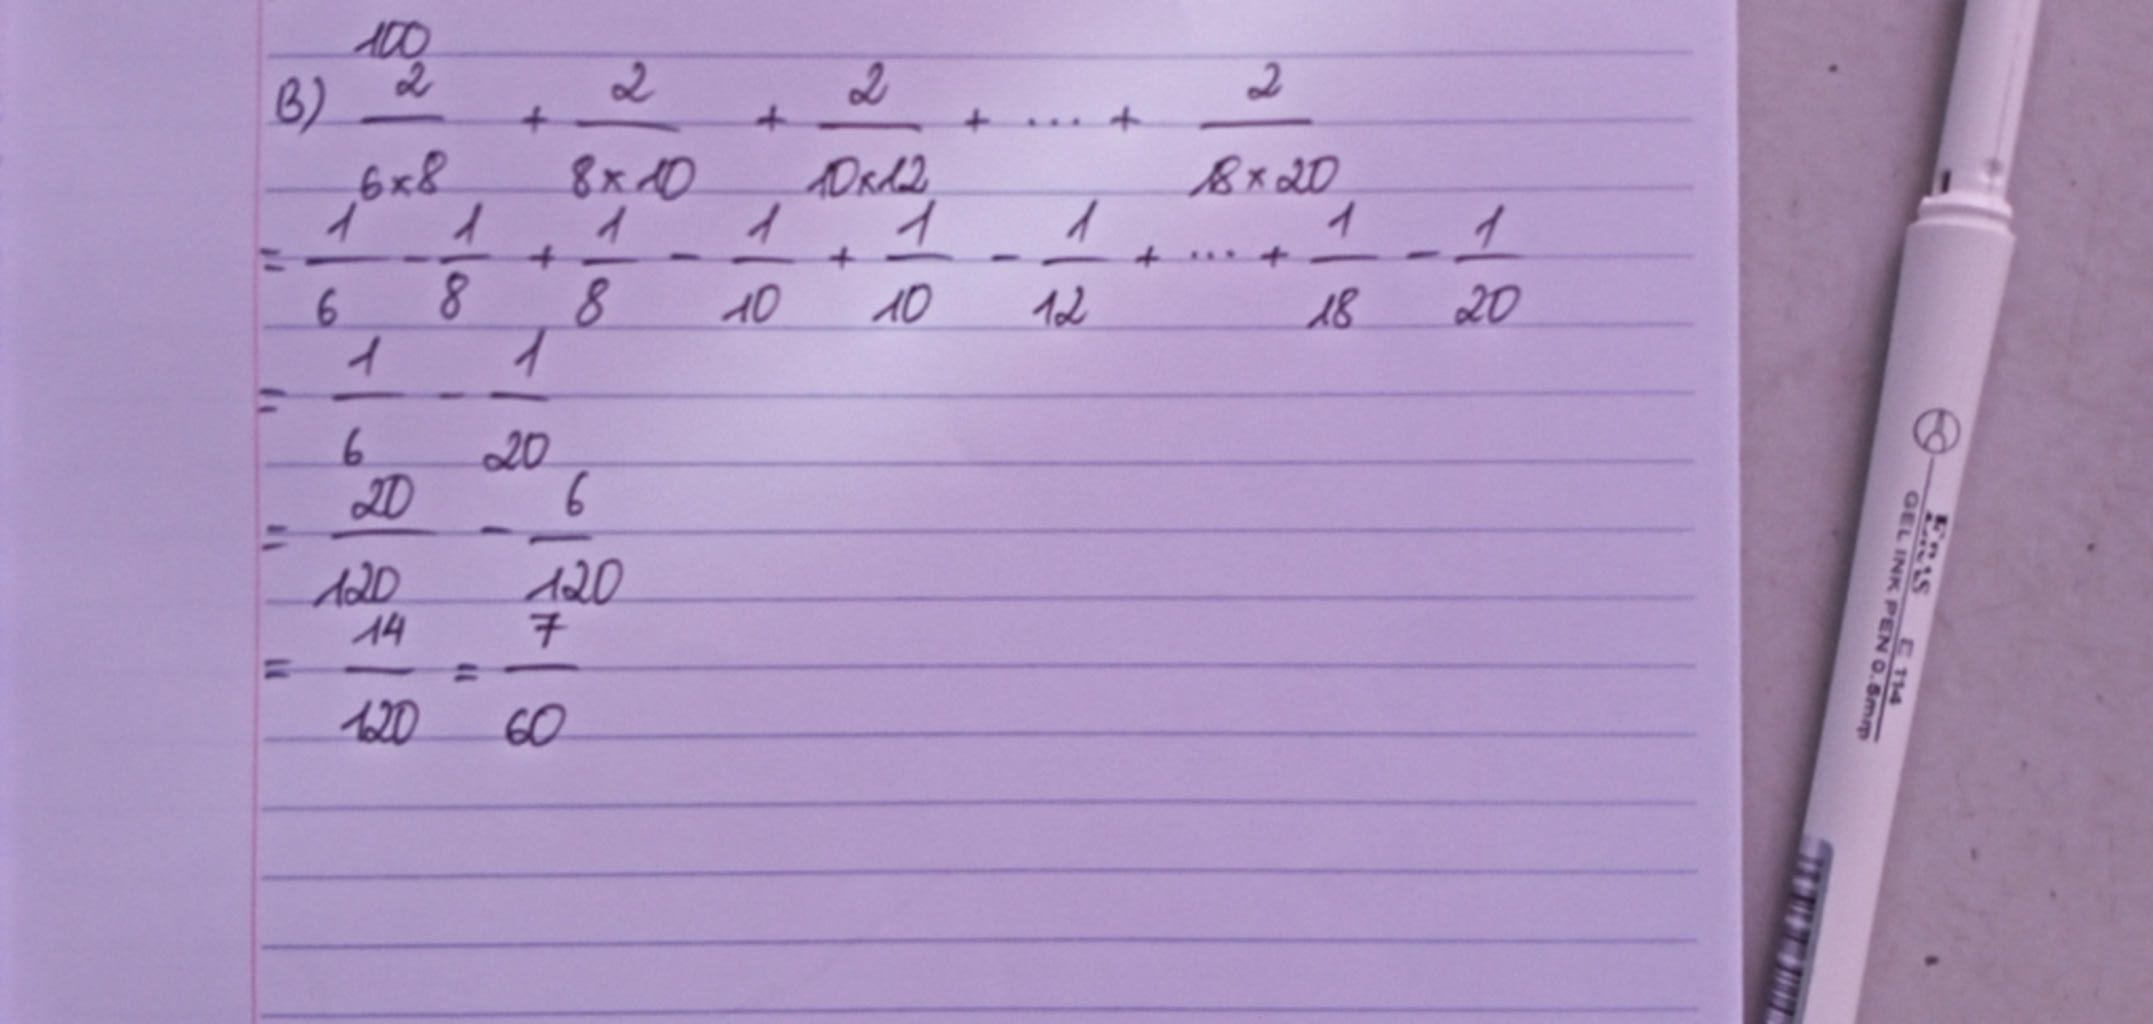 100
B) 2/6×8 + 2/8×10 + 2/10×12 + ... + 2/18×20
= 1/6 - 1/8 + 1/8 - 1/10 + 1/10 - 1/12 + ... + 1/18 - 1/20
= 1/6 - 1/20
= 20/120 - 6/120
= 14/120 = 7/60
GEL INK PEN 0.5mm